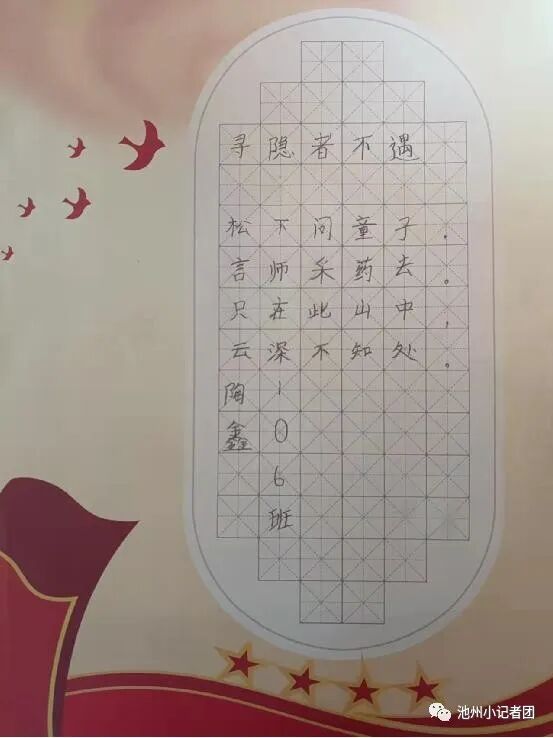 寻隐者不遇
松下问童子，
言师采药去。
只在此山中，
云深不知处。
陶鑫
106班
池州小记者团